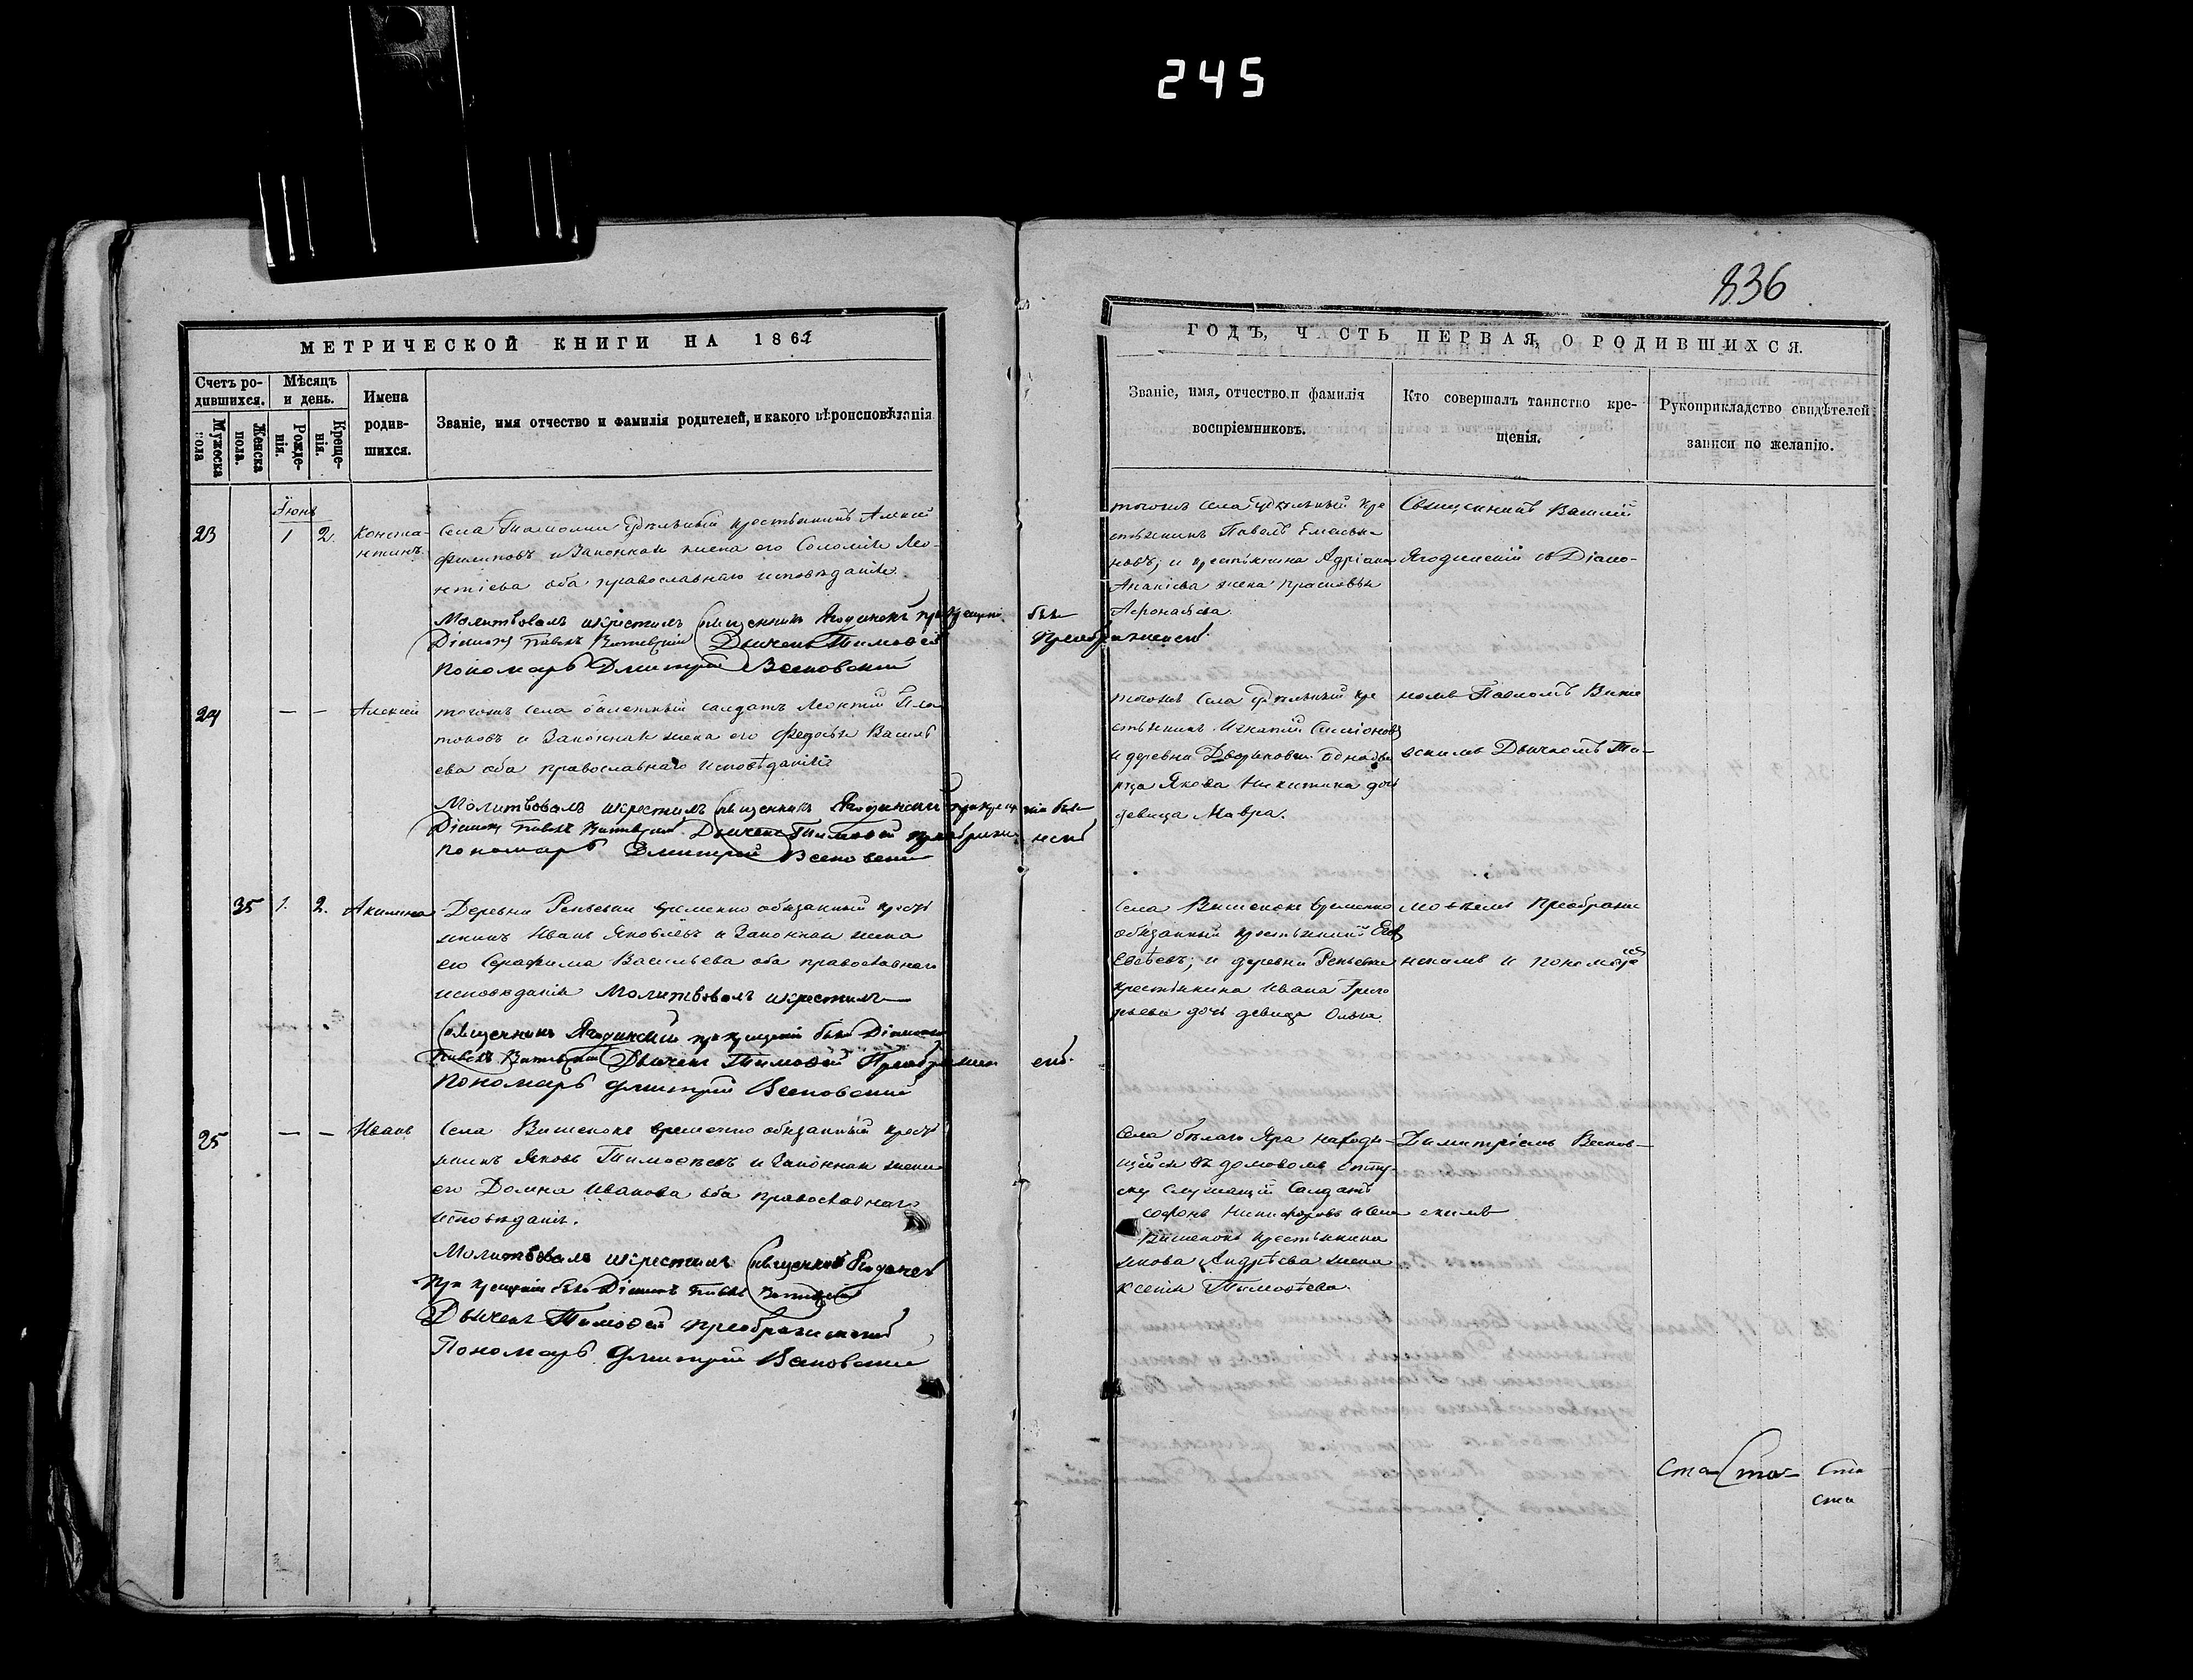 245
836
МЕТРИЧЕСКОЙ КНИГИ НА 1862
ГОДЪ, ЧАСТЬ ПЕРВАЯ, О РОДИВШИХСЯ.
Счетъ родившихся.
Мужеска пола
Женска пола.
Мѣсяцъ и день.
Рожденія.
Крещенія.
Имена родившихся.
Званіе, имя отчество и фамилія родителей, и какого вѣроисповѣданія
Званіе, имя, отчество и фамилія
воспріемниковъ.
Кто совершалъ таинство крещенія.
Рукоприкладство свидѣтелей
записи по желанію.
Іюнь
23 1 2. Конста-
нтинъ.
Села удѣльный крестьянинъ Алексѣй
Филиповъ и Законная жена его Соломія Лео-
нтіева оба православнаго исповѣданія.
Молитвовалъ и крестилъ Священникъ при крещеніи
былъ
Діаконъ Павелъ Дьячекъ Тимоѳей
Преображенскій
Пономарь Дмитрій
тогожъ села удѣльный кре
стьянинъ Павелъ Емелья-
новъ; и крестьянина Адріана
Ананіева жена Прасковья
Афонасьева
Священникъ Василій
Ягодинскій съ Діако-
24 — — Алексѣй
тогожъ села билетный салдатъ Леонтій Пла
тоновъ и Законная жена его Федосья Василь
ева оба православнаго исповѣданія
Молитвовалъ и крестилъ Священникъ Ягодинскій при крещеніи былъ
Діаконъ Павелъ Дьячекъ Тимоѳей Преображенскій
Пономарь Дмитрій
тогожъ села удѣльный кре
стьянинъ Игнатій Симіоновъ
и деревни однодво
рца Якова Никитина дочь
девица Мавра.
номъ Павломъ
скимъ Дьячкомъ Ти-
35 1. 2. Акилина
Деревни Репьевки временно обязанный кресть
янинъ Иванъ Яковлевъ и Законная жена
его Серафима Васильева оба православнаго
исповѣданія Молитвовалъ и крестилъ
Священникъ Ягодинскій при крещеніи былъ Діаконъ
Павелъ Дьячекъ Тимоѳей Преображенскій
Пономарь Дмитрій
Села Вишенокъ временно
обязанный крестьянинъ
Евсѣевъ; и деревни Репьевки
крестьянина Ивана Григо
рьева дочь девица Ольга.
моѳеемъ Преображе
нскимъ и пономаремъ
25 — — Иванъ
Села Вишенокъ временно обязанный кресть
янинъ Яковъ Тимоѳеевъ и Законная жена
его Домна Иванова оба православнаго
исповѣданія.
Молитвовалъ и крестилъ Священникъ
при крещеніи былъ Діаконъ Павелъ
Дьячекъ Тимоѳей Преображенскій
Пономарь Дмитрій
Села бѣлаго Яра находя-
щійся въ домовомъ отпу-
ску служащій Салдатъ
Софонъ Никифоровъ и Села
Вишенокъ крестьянина
Якова Андрѣева жена
Ксенія Тимоѳеева.
Димитріемъ
скимъ
Ста Ста Ста
ста